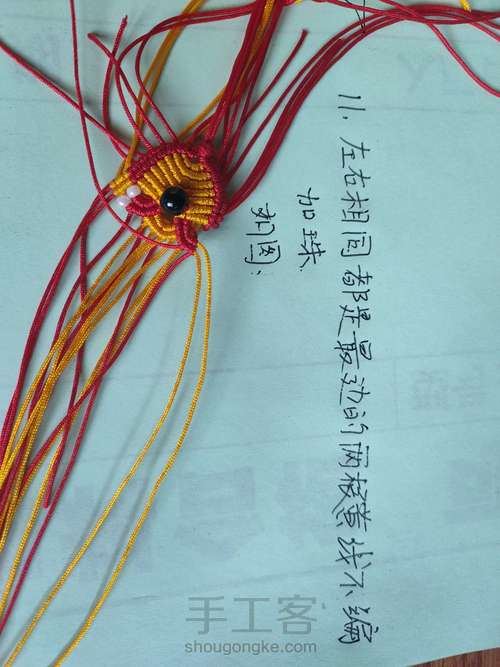 11. 左右相同都是最边的两根黄线不编
加珠
如图:
手工客
shougongke.com